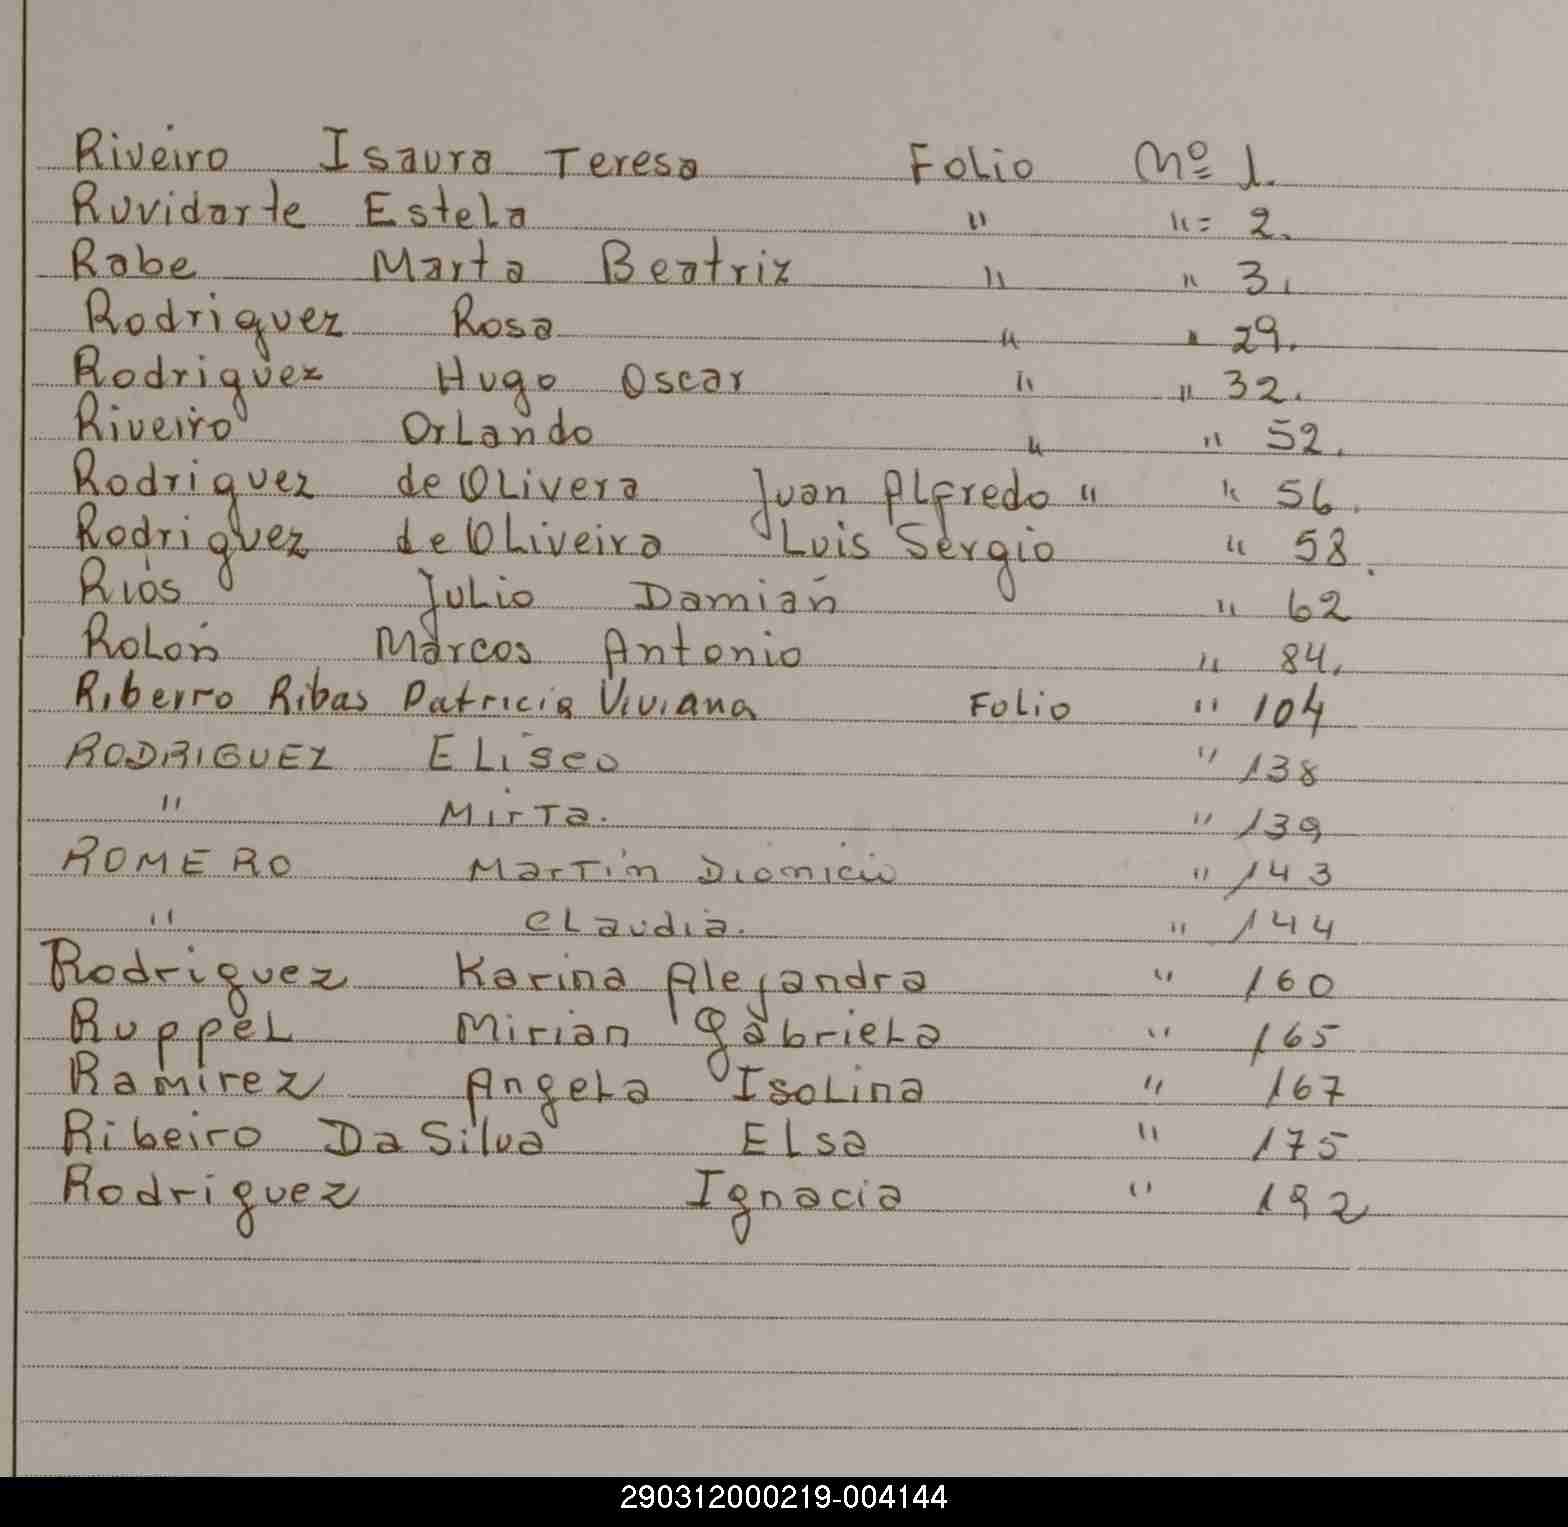 Riveiro Isaura Teresa Folio Nº 1.
Ruvidarte Estela " "= 2.
Rabe Marta Beatriz " " 3.
Rodriguez Rosa " " 29.
Rodriguez Hugo Oscar " " 32.
Riveiro Orlando " " 52.
Rodriguez de Olivera Juan Alfredo " " 56.
Rodriguez de Oliveira Luis Sergio " 58.
Ríos Julio Damián " 62
Rolón Marcos Antonio " 84.
Riberro Ribas Patricia Viviana Folio " 104
RODRIGUEZ Eliseo " 138
" Mirta. " 139
ROMERO Martín Dionicio " 143
" Claudia. " 144
Rodriguez Karina Alejandra " 160
Ruppel Mirian Gabriela " 165
Ramirez Angela Isolina " 167
Ribeiro Da Silva Elsa " 175
Rodriguez Ignacia " 192
290312000219-004144